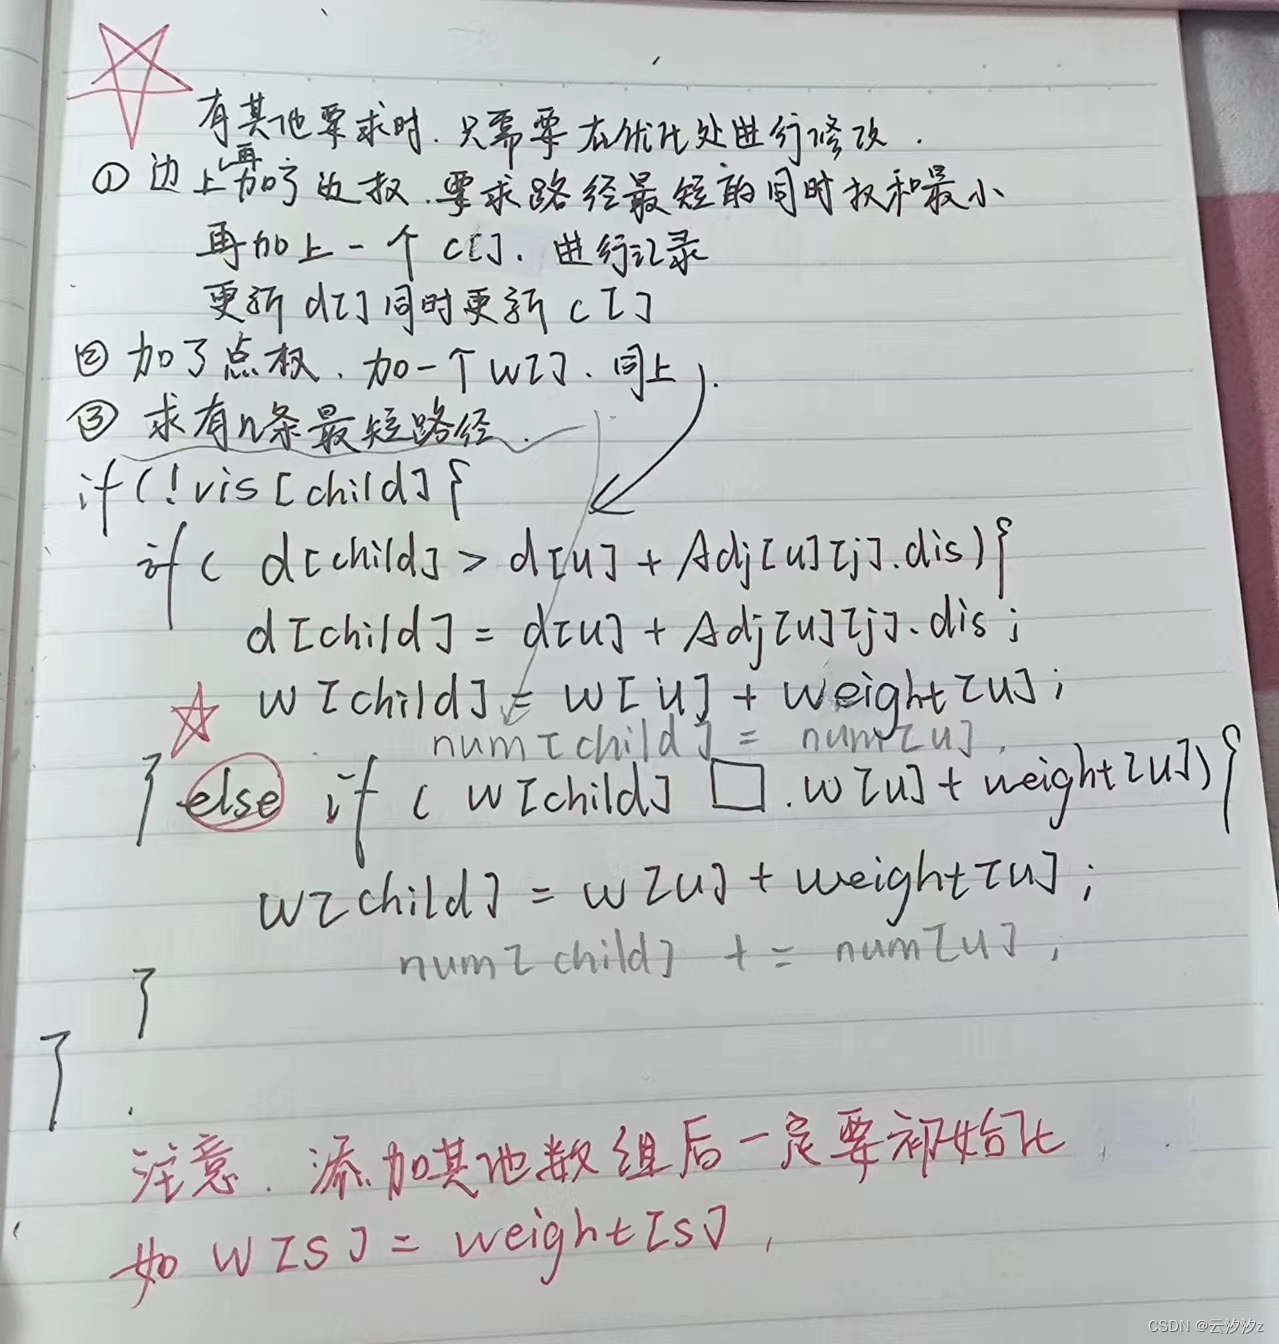 有其他要求时.只需要在优化处进行修改.
①边上再加了边权.要求路径最短的同时权和最小
再加上一个c[].进行记录
更新d[]同时更新c[]
②加了点权.加一个w[].同上.
③求有n条最短路径.
if(!vis[child]{
if( d[child] > d[u] + Adj[u][j].dis){
d[child] = d[u] + Adj[u][j].dis;
w[child] = w[u] + weight[u];
num[child] = num[u].
} else if ( w[child] □ .w[u] + weight[u]){
w[child] = w[u] + weight[u];
num[child] += num[u];
}
}
注意.添加其他数组后一定要初始化
如 w[s] = weight[s],
CSDN @云汐汐z